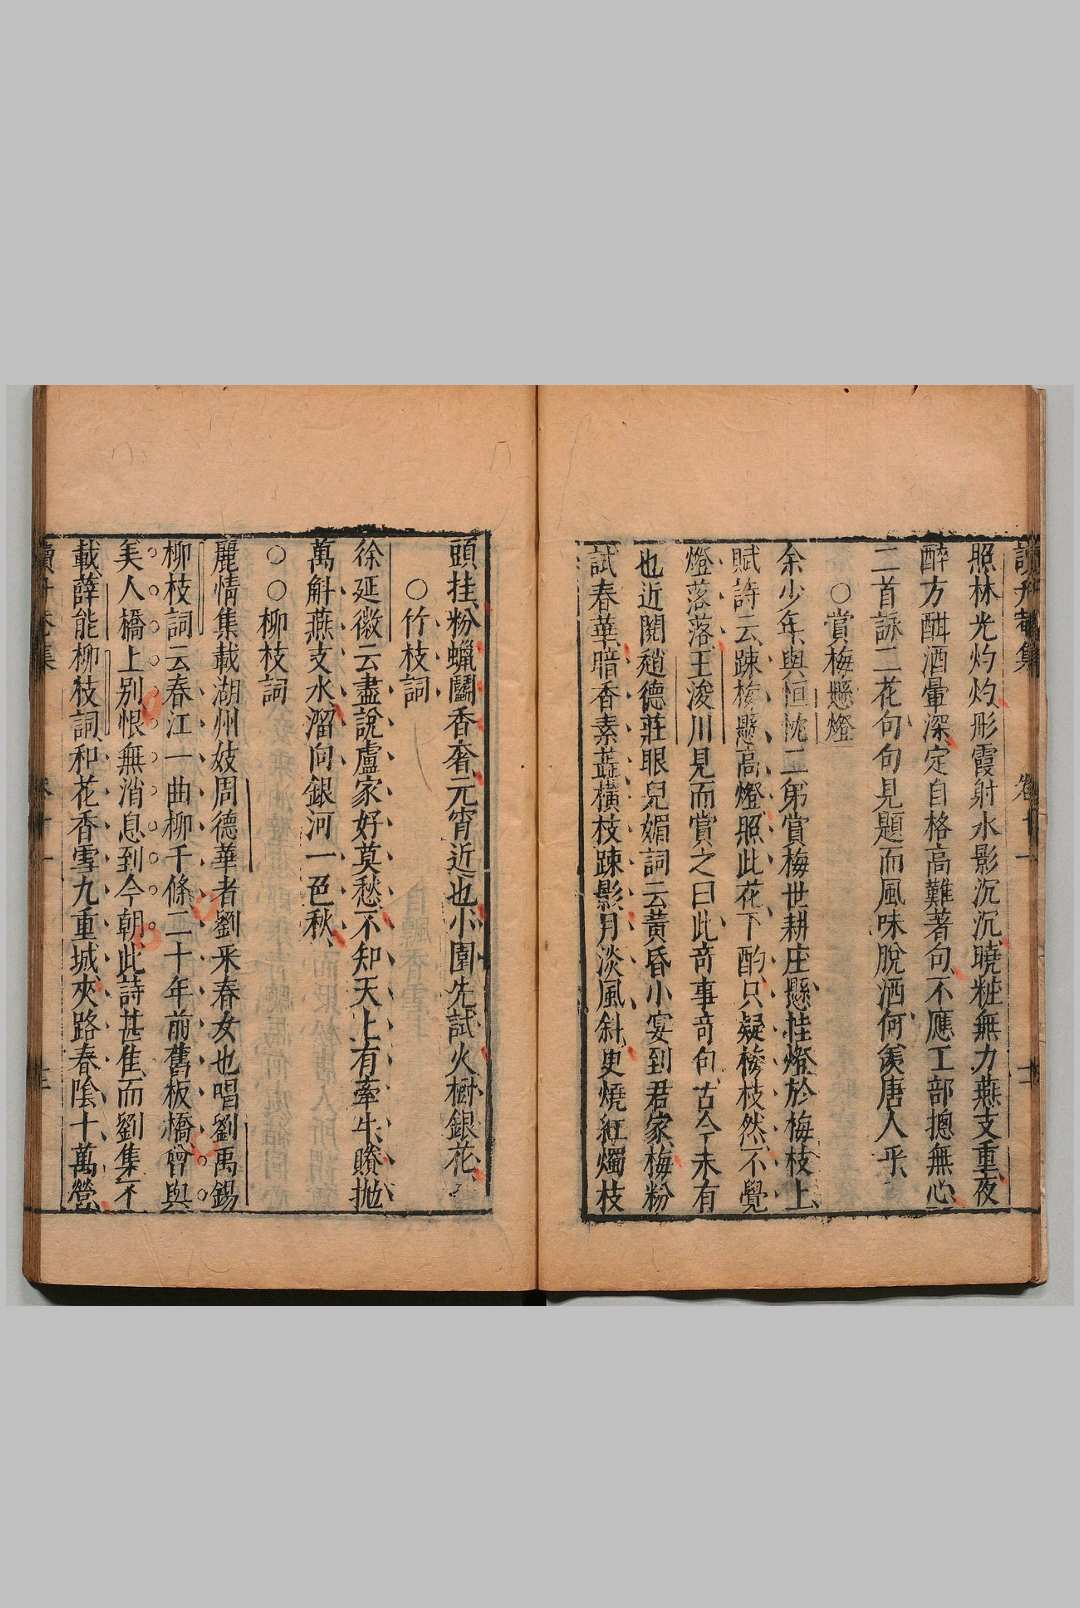 照林光灼灼彤霞射水影沉沉曉粧無力燕支重夜
醉方酣酒暈深定自格高難著句不應工部摠無心
二首詠二花句句見題而風味脫洒何羨唐人乎
○賞梅懸燈
余少年與恒忱二弟賞梅世耕庄懸挂燈於梅枝上
賦詩云踈梅懸高燈照此花下酌只疑梅枝然不覺
燈落落王浚川見而賞之曰此奇事奇句古今未有
也近閱趙德莊眼兒媚詞云黃昏小宴到君家梅粉
試春華暗香素蘂橫枝踈影月淡風斜更燒紅燭枝
頭挂粉蠟鬭香奢元宵近也小園先試火樹銀花
○竹枝詞
徐延徽云盡說盧家好莫愁不知天上有牽牛賸拋
萬斛燕支水溜向銀河一色秋
○○柳枝詞
麗情集載湖州妓周德華者劉采春女也唱劉禹錫
柳枝詞云春江一曲柳千條二十年前舊板橋曾與
美人橋上別恨無消息到今朝此詩甚隹而劉集不
載薛能柳枝詞和花香雪九重城夾路春陰十萬營